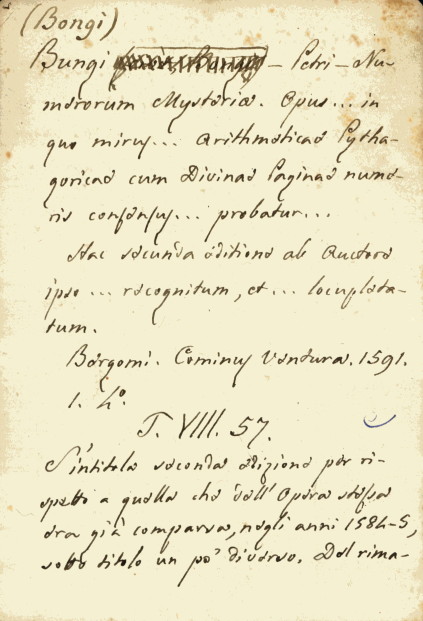 (Bongi)
Bungi - Petri - Nu-
merorum Mysteria. Opus... in
quo mirus... Arithmeticae Pytha-
goricae cum Divinae Paginae nume-
ris consensus... probatur...
Hac secunda editione ab Auctore
ipso ... recognitum, et ... locupleta-
tum.
Bergomi. Cominus Ventura. 1591.
1. 4°.
T. VIII. 57.
S'intitola seconda edizione per ri-
spetto a quella che dell'Opera stessa
era già comparsa, negli anni 1584-5,
sotto titolo un po' diverso. Del rima-